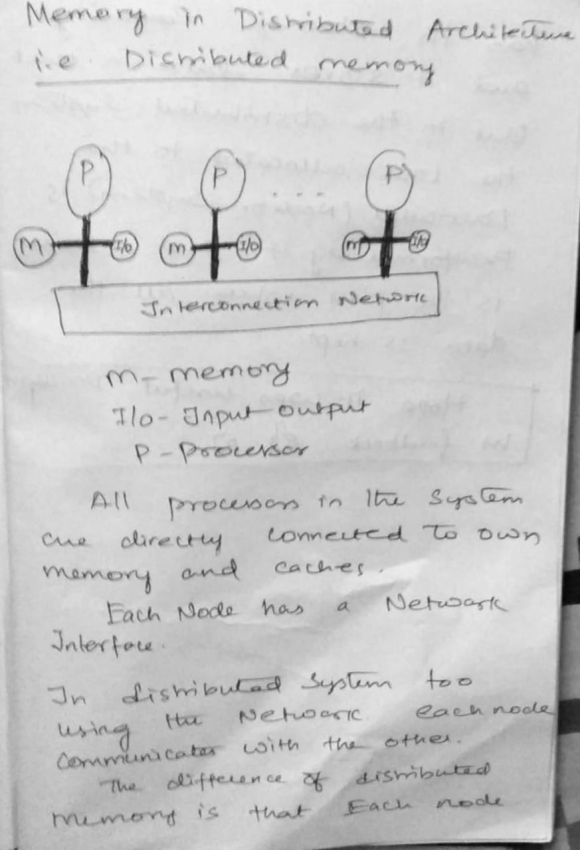 Memory in Distributed Architecture
i.e. Distributed memory
P P ... P
M I/O M I/O M I/O
Interconnection Network
M - memory
I/o - Input output
P - Processor
All processors in the system
are directly connected to own
memory and caches.
Each Node has a Network
Interface.
In distributed system too
using the Network each node
communicates with the other.
The difference of distributed
memory is that Each node